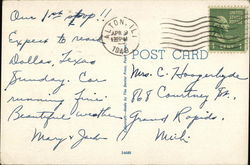 Our 1st stop!!
Expect to reach
Dallas, Texas
Sunday. Car
running fine.
Beautiful weather
Mary + Jack
ALTON, ILL.
APR
1948
POST CARD
Mrs. C. Hoogerhyde
868 Courtney St.
Grand Rapids
Mich.